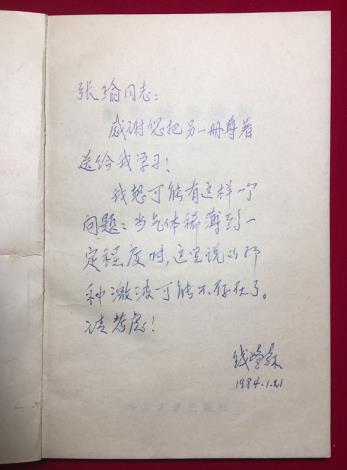 张瑜同志：
感谢您把另一册尊著
送给我学习！
我想可能有这样一个
问题：当气体稀薄到一
定程度时，这里说的那
种激波可能不存在了。
请考虑！
钱学森
1984.1.21